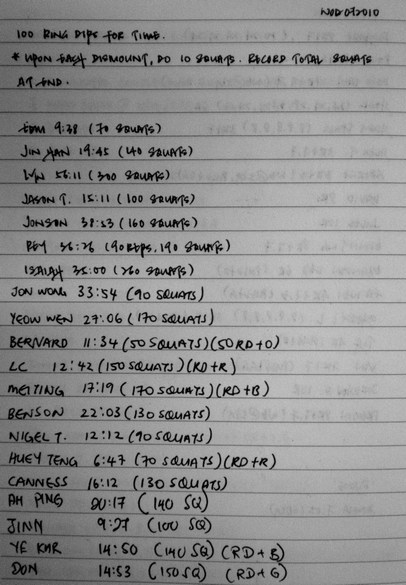 WOD 072010
100 RING DIPS FOR TIME.
* UPON EACH DISMOUNT, DO 10 SQUATS. RECORD TOTAL SQUATS
AT END.
9:38 (70 SQUATS)
JIN HAN 19:45 (140 SQUATS)
LYN 56:11 (300 SQUATS)
JASON T. 15:11 (100 SQUATS)
JONSON 38:53 (160 SQUATS)
36:26 (90 REPS, 190 SQUATS)
ISAIAH 35:00 (260 SQUATS)
JON WONG 33:54 (90 SQUATS)
YEOW WEN 27:06 (170 SQUATS)
BERNARD 11:34 (50 SQUATS) (50 RD + O)
LC 12:42 (150 SQUATS) (RD + R)
MEITING 17:19 (170 SQUATS) (RD + B)
BENSON 22:03 (130 SQUATS)
NIGEL T. 12:12 (90 SQUATS)
HUEY TENG 6:47 (70 SQUATS) (RD + R)
CANNESS 16:12 (130 SQUATS)
AH PING 20:17 (140 SQ)
JINN 9:27 (100 SQ)
YE KAR 14:50 (140 SQ) (RD + B)
DON 14:53 (150 SQ) (RD + G)